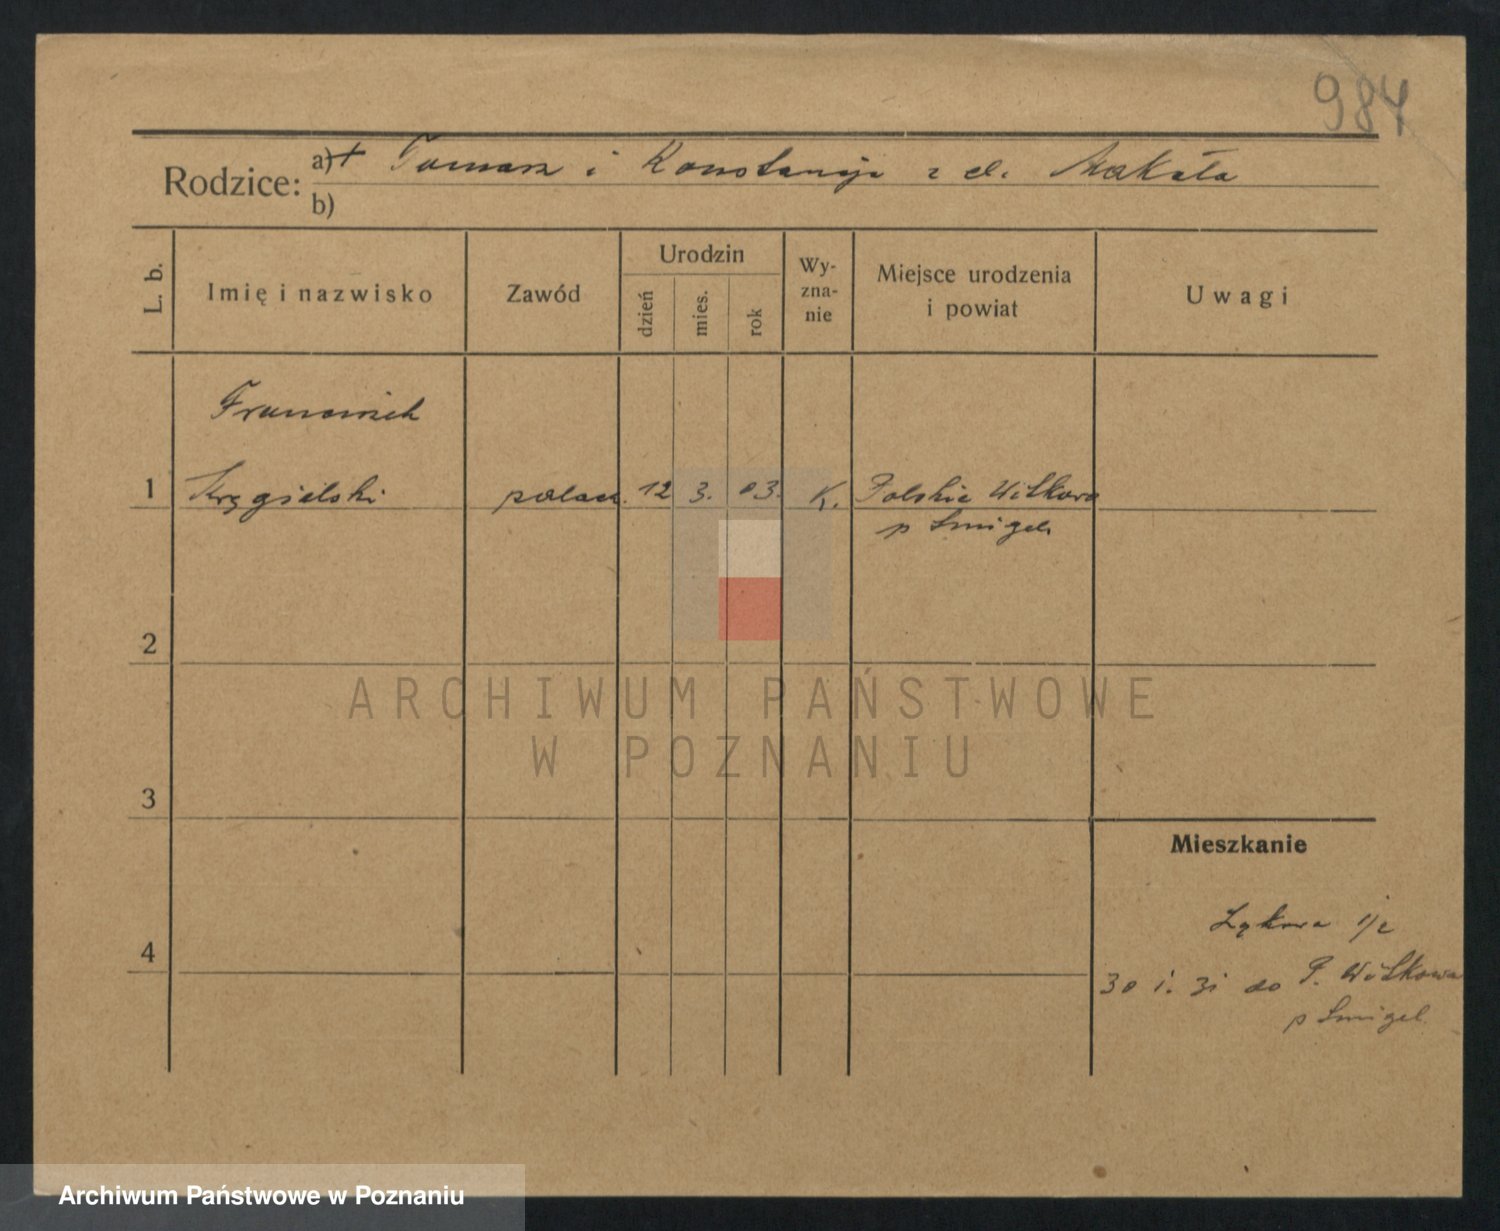 984
Rodzice: a) + Tomasz i Konstancja z d. Makała
b)
L. b.
Imię i nazwisko
Zawód
Urodzin
dzień
mies.
rok
Wy-
zna-
nie
Miejsce urodzenia
i powiat
Uwagi
Franciszek
1 Kręgielski 12 3. 03. K. Polskie Wilkowo
p Śmigel
2
ARCHIWUM PAŃSTWOWE
W POZNANIU
3
Mieszkanie
Łąkowa 1/2
4
30 i. 31 do P. Wilkowa
p Śmigel
Archiwum Państwowe w Poznaniu